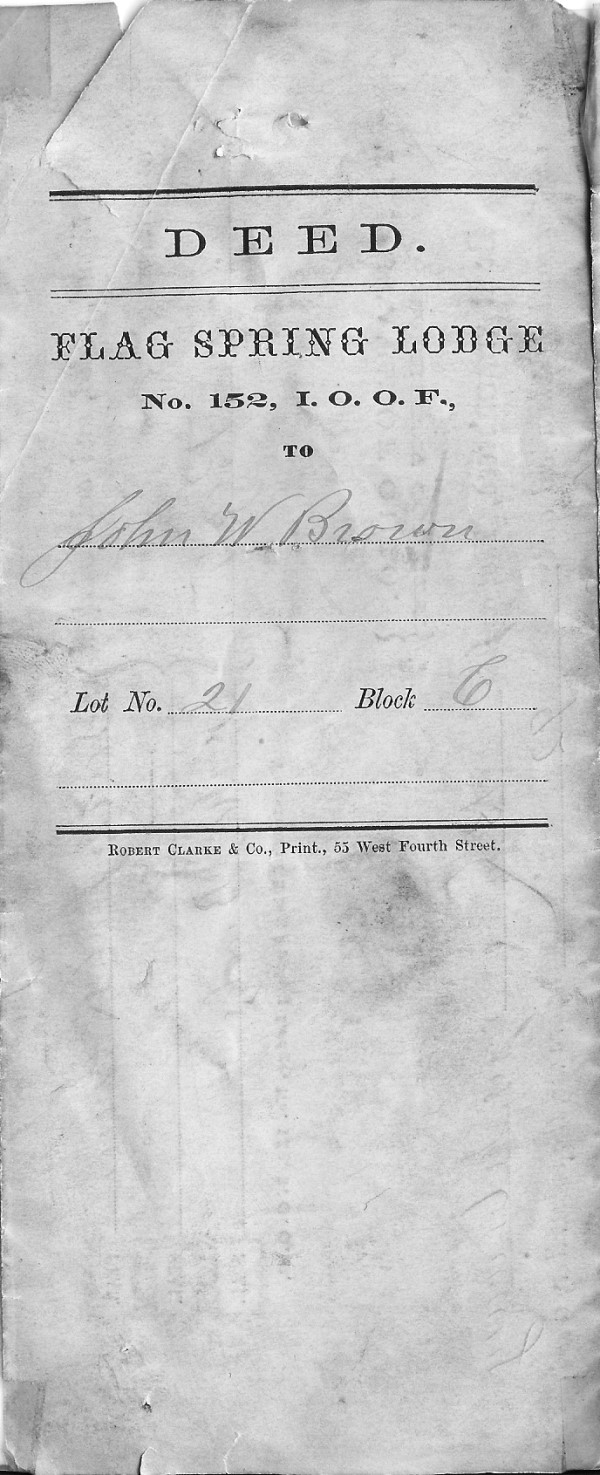 DEED.
FLAG SPRING LODGE
No. 152, I. O. O. F.,
TO
John W. Brown
Lot No. 21 Block C
ROBERT CLARKE & Co., Print., 55 West Fourth Street.